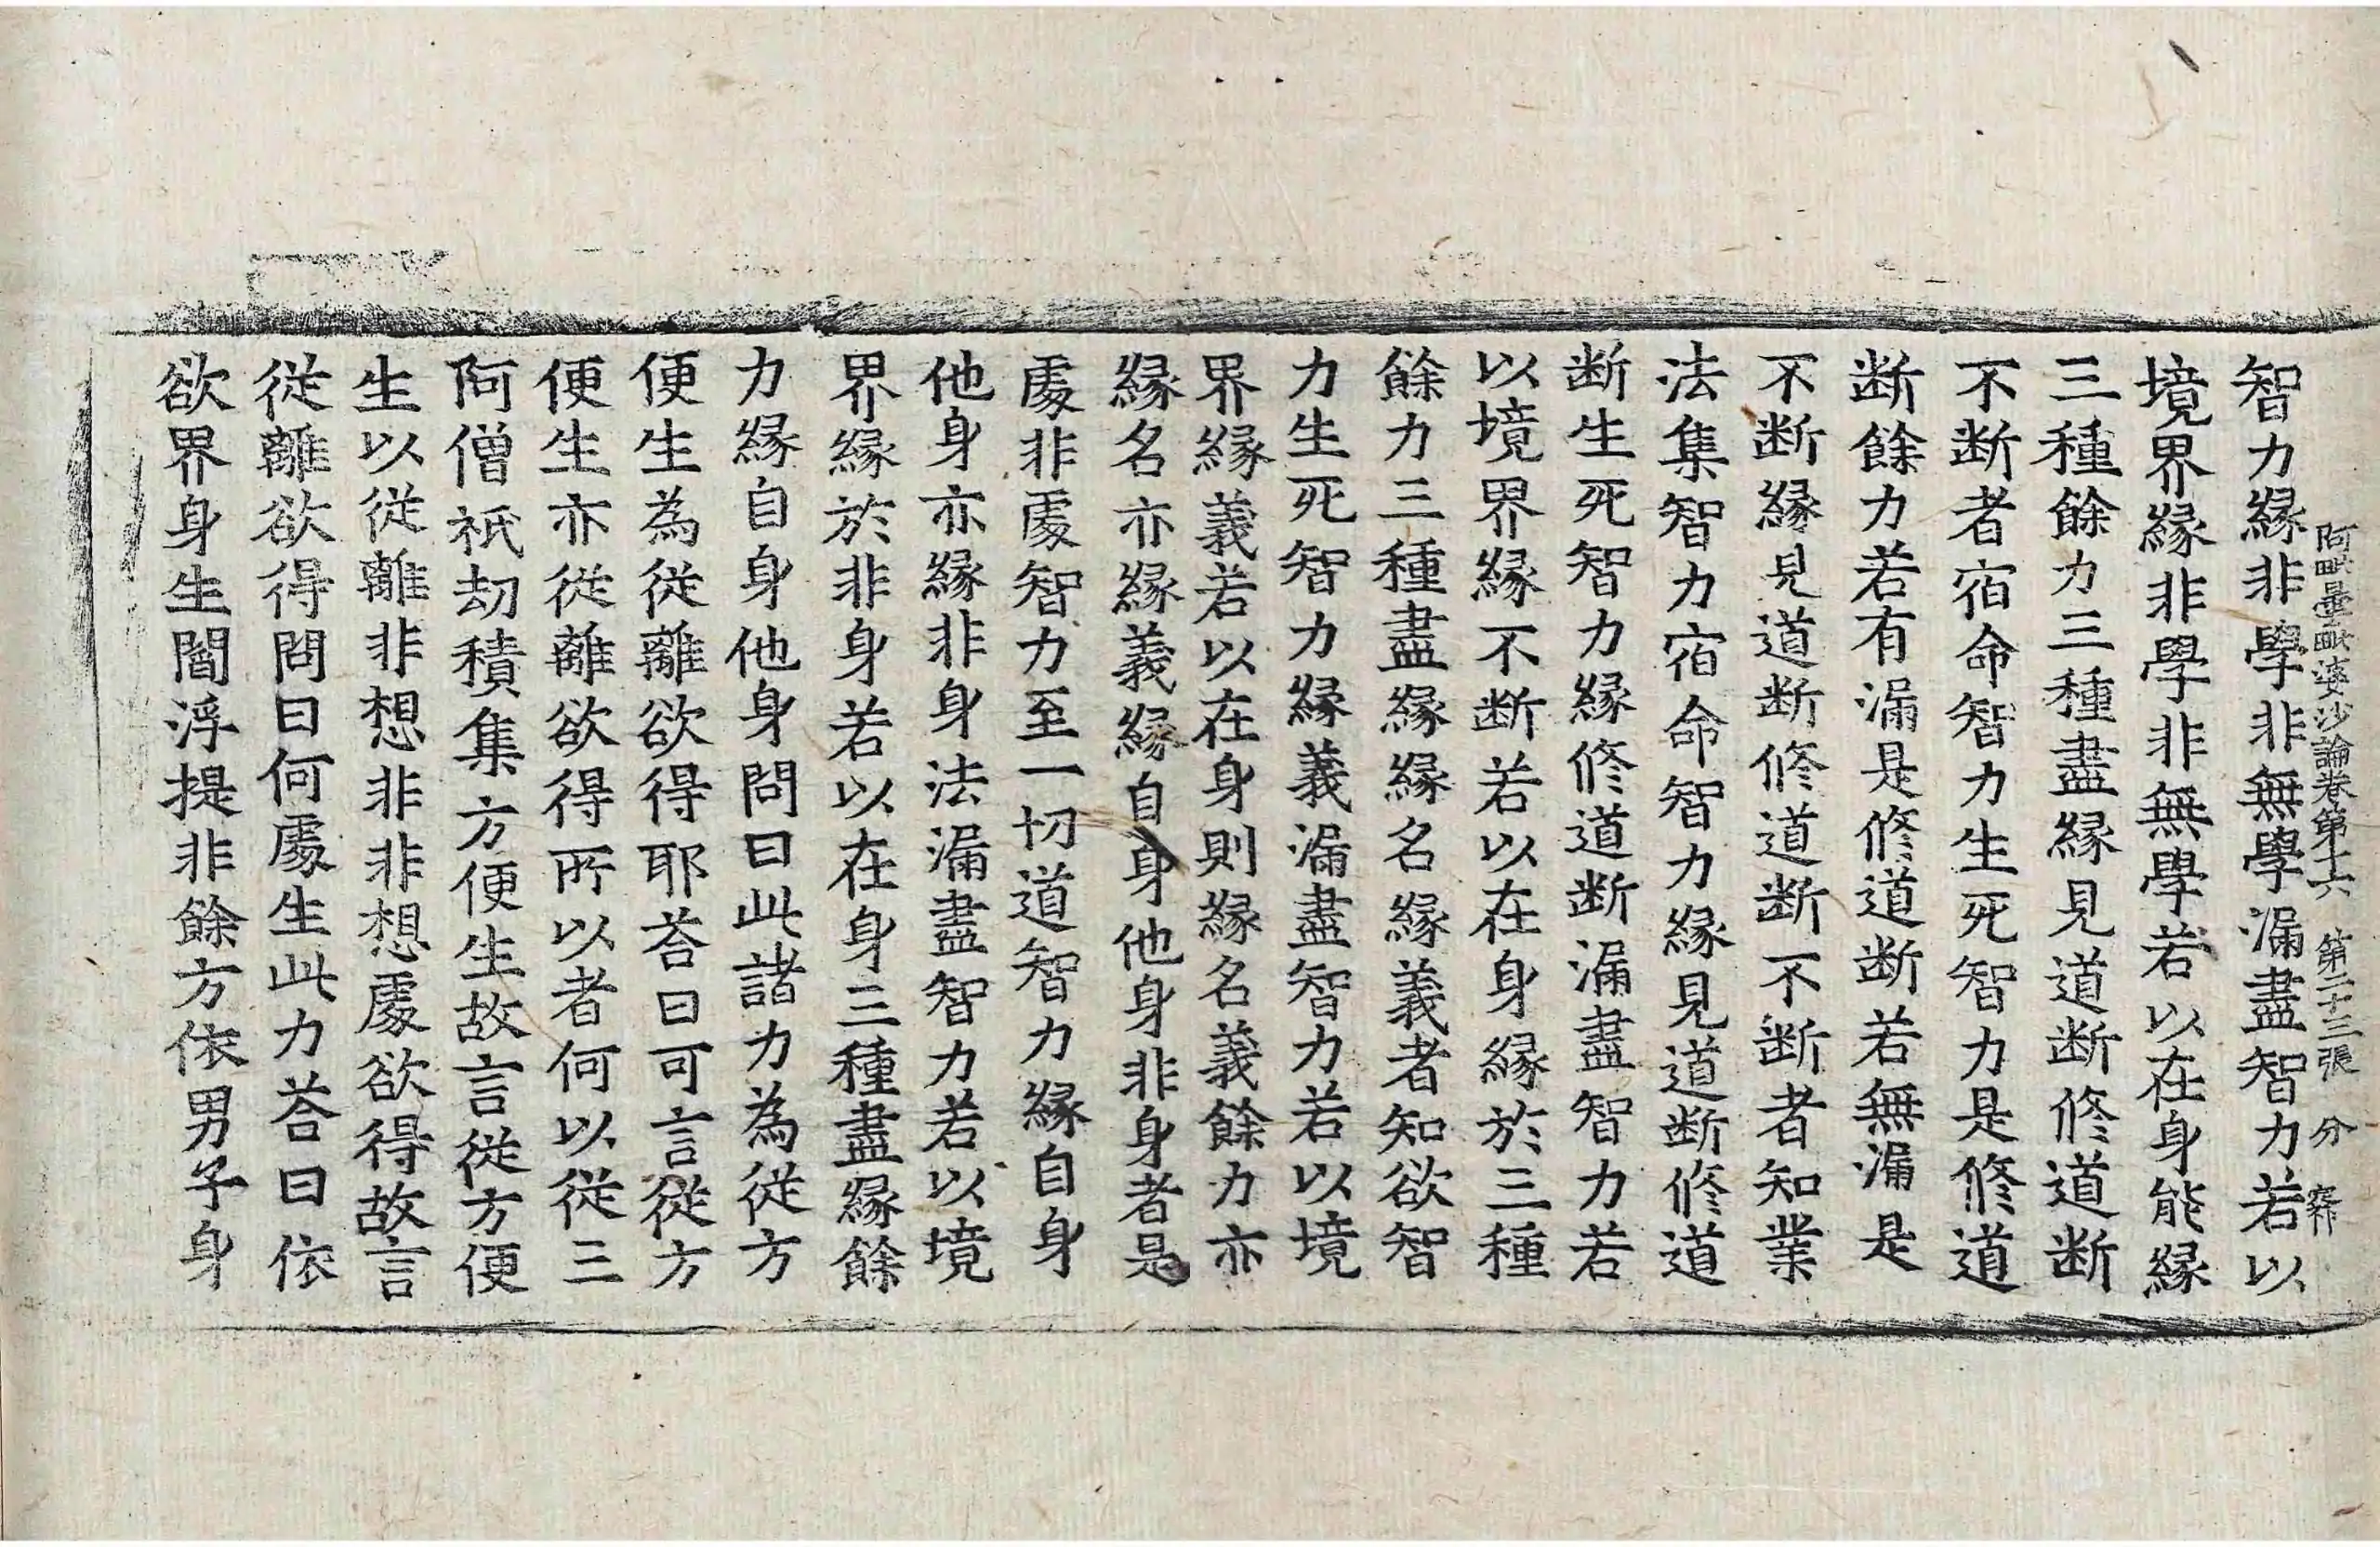 阿毗曇毗婆沙論卷第十六　第二十三張　分
智力緣非學非無學漏盡智力若以
境界緣非學非無學若以在身能緣
三種餘力三種盡緣見道断修道断
不断者宿命智力生死智力是修道
断餘力若有漏是修道断若無漏是
不断緣見道断修道断不断者知業
法集智力宿命智力緣見道断修道
断生死智力緣修道断漏盡智力若
以境界緣不断若以在身緣於三種
餘力三種盡緣緣名緣義者知欲智
力生死智力緣義漏盡智力若以境
界緣義若以在身則緣名義餘力亦
緣名亦緣義緣自身他身非身者是
處非處智力至一切道智力緣自身
他身亦緣非身法漏盡智力若以境
界緣於非身若以在身三種盡緣餘
力緣自身他身問曰此諸力為從方
便生為從離欲得耶荅曰可言從方
便生亦從離欲得所以者何以從三
阿僧祇劫積集方便生故言從方便
生以從離非想非非想處欲得故言
從離欲得問曰何處生此力荅曰依
欲界身生閻浮提非餘方依男子身